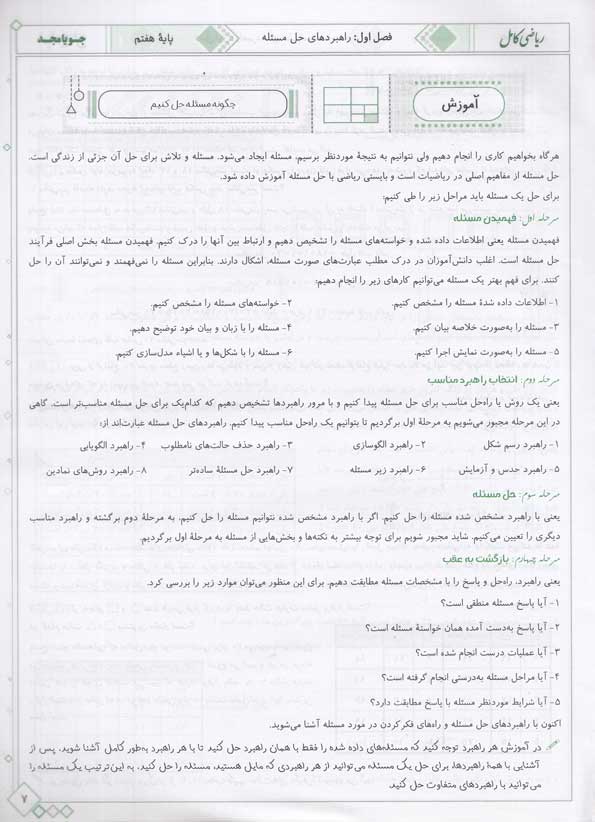 ریاضی کامل
فصل اول: راهبردهای حل مسئله
پایهٔ هفتم
جویا مجد
آموزش
چگونه مسئله حل کنیم
هرگاه بخواهیم کاری را انجام دهیم ولی نتوانیم به نتیجهٔ موردنظر برسیم، مسئله ایجاد می‌شود. مسئله و تلاش برای حل آن جزئی از زندگی است.
حل مسئله از مفاهیم اصلی در ریاضیات است و بایستی ریاضی با حل مسئله آموزش داده شود.
برای حل یک مسئله باید مراحل زیر را طی کنیم:
مرحله اول: فهمیدن مسئله
فهمیدن مسئله یعنی اطلاعات داده شده و خواسته‌های مسئله را تشخیص دهیم و ارتباط بین آنها را درک کنیم. فهمیدن مسئله بخش اصلی فرآیند
حل مسئله است. اغلب دانش‌آموزان در درک مطلب عبارت‌های صورت مسئله، اشکال دارند. بنابراین مسئله را نمی‌فهمند و نمی‌توانند آن را حل
کنند. برای فهم بهتر یک مسئله می‌توانیم کارهای زیر را انجام دهیم:
۱- اطلاعات داده شدهٔ مسئله را مشخص کنیم. ۲- خواسته‌های مسئله را مشخص کنیم.
۳- مسئله را به‌صورت خلاصه بیان کنیم. ۴- مسئله را با زبان و بیان خود توضیح دهیم.
۵- مسئله را به‌صورت نمایش اجرا کنیم. ۶- مسئله را با شکل‌ها و یا اشیاء مدل‌سازی کنیم.
مرحله دوم: انتخاب راهبرد مناسب
یعنی یک روش یا راه‌حل مناسب برای حل مسئله پیدا کنیم و با مرور راهبردها تشخیص دهیم که کدام‌یک برای حل مسئله مناسب‌تر است. گاهی
در این مرحله مجبور می‌شویم به مرحلهٔ اول برگردیم تا بتوانیم یک راه‌حل مناسب پیدا کنیم. راهبردهای حل مسئله عبارت‌اند از:
۱- راهبرد رسم شکل ۲- راهبرد الگوسازی ۳- راهبرد حذف حالت‌های نامطلوب ۴- راهبرد الگویابی
۵- راهبرد حدس و آزمایش ۶- راهبرد زیر مسئله ۷- راهبرد حل مسئلهٔ ساده‌تر ۸- راهبرد روش‌های نمادین
مرحله سوم: حل مسئله
یعنی با راهبرد مشخص شده مسئله را حل کنیم. اگر با راهبرد مشخص شده نتوانیم مسئله را حل کنیم، به مرحلهٔ دوم برگشته و راهبرد مناسب
دیگری را تعیین می‌کنیم. شاید مجبور شویم برای توجه بیشتر به نکته‌ها و بخش‌هایی از مسئله به مرحلهٔ اول برگردیم.
مرحله چهارم: بازگشت به عقب
یعنی راهبرد، راه‌حل و پاسخ را با مشخصات مسئله مطابقت دهیم. برای این منظور می‌توان موارد زیر را بررسی کرد.
۱- آیا پاسخ مسئله منطقی است؟
۲- آیا پاسخ به‌دست آمده همان خواستهٔ مسئله است؟
۳- آیا عملیات درست انجام شده است؟
۴- آیا مراحل مسئله به‌درستی انجام گرفته است؟
۵- آیا شرایط موردنظر مسئله با پاسخ مطابقت دارد؟
اکنون با راهبردهای حل مسئله و راه‌های فکر کردن در مورد مسئله آشنا می‌شوید.
در آموزش هر راهبرد توجه کنید که مسئله‌های داده شده را فقط با همان راهبرد حل کنید تا با هر راهبرد به‌طور کامل آشنا شوید. پس از
آشنایی با همهٔ راهبردها، برای حل یک مسئله می‌توانید از هر راهبردی که مایل هستید، مسئله را حل کنید. به این ترتیب یک مسئله را
می‌توانید با راهبردهای متفاوت حل کنید.
۷